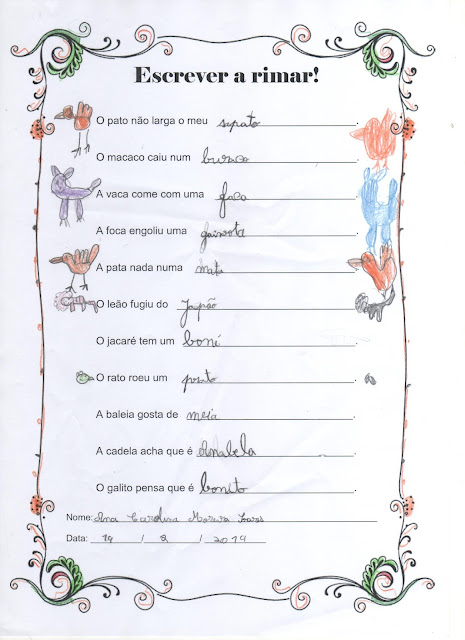 Escrever a rimar!
O pato não larga o meu sapato.
O macaco caiu num buraco.
A vaca come com uma faca.
A foca engoliu uma gaivota.
A pata nada numa mata.
O leão fugiu do Japão.
O jacaré tem um boné.
O rato roeu um prato.
A baleia gosta de meia.
A cadela acha que é Anabela.
O galito pensa que é bonito.
Nome: Ana Carolina Moreira
Data: 14 / 2 / 2014